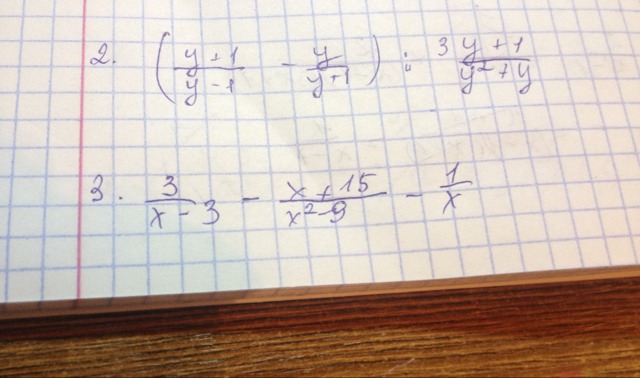 2. ( (y+1)/(y-1) - y/(y+1) ) : (3y+1)/(y²+y)
3. 3/(x-3) - (x+15)/(x²-9) - 1/x